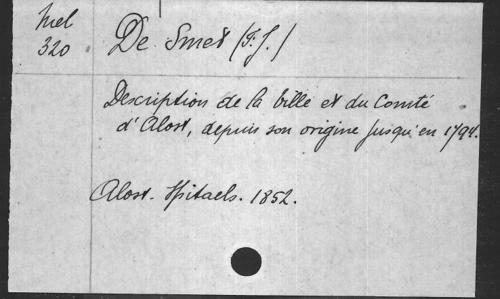 Mel
320
De Smet (J.J.)
Description de la ville et du Comté
d'Alost, depuis son origine jusqu'en 1794.
Alost. Spitaels. 1852.